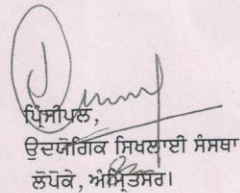 ਪ੍ਰਿੰਸੀਪਲ,
ਉਦਯੋਗਿਕ ਸਿਖਲਾਈ ਸੰਸਥਾ
ਲੋਪੋਕੇ, ਅੰਮ੍ਰਿਤਸਰ।